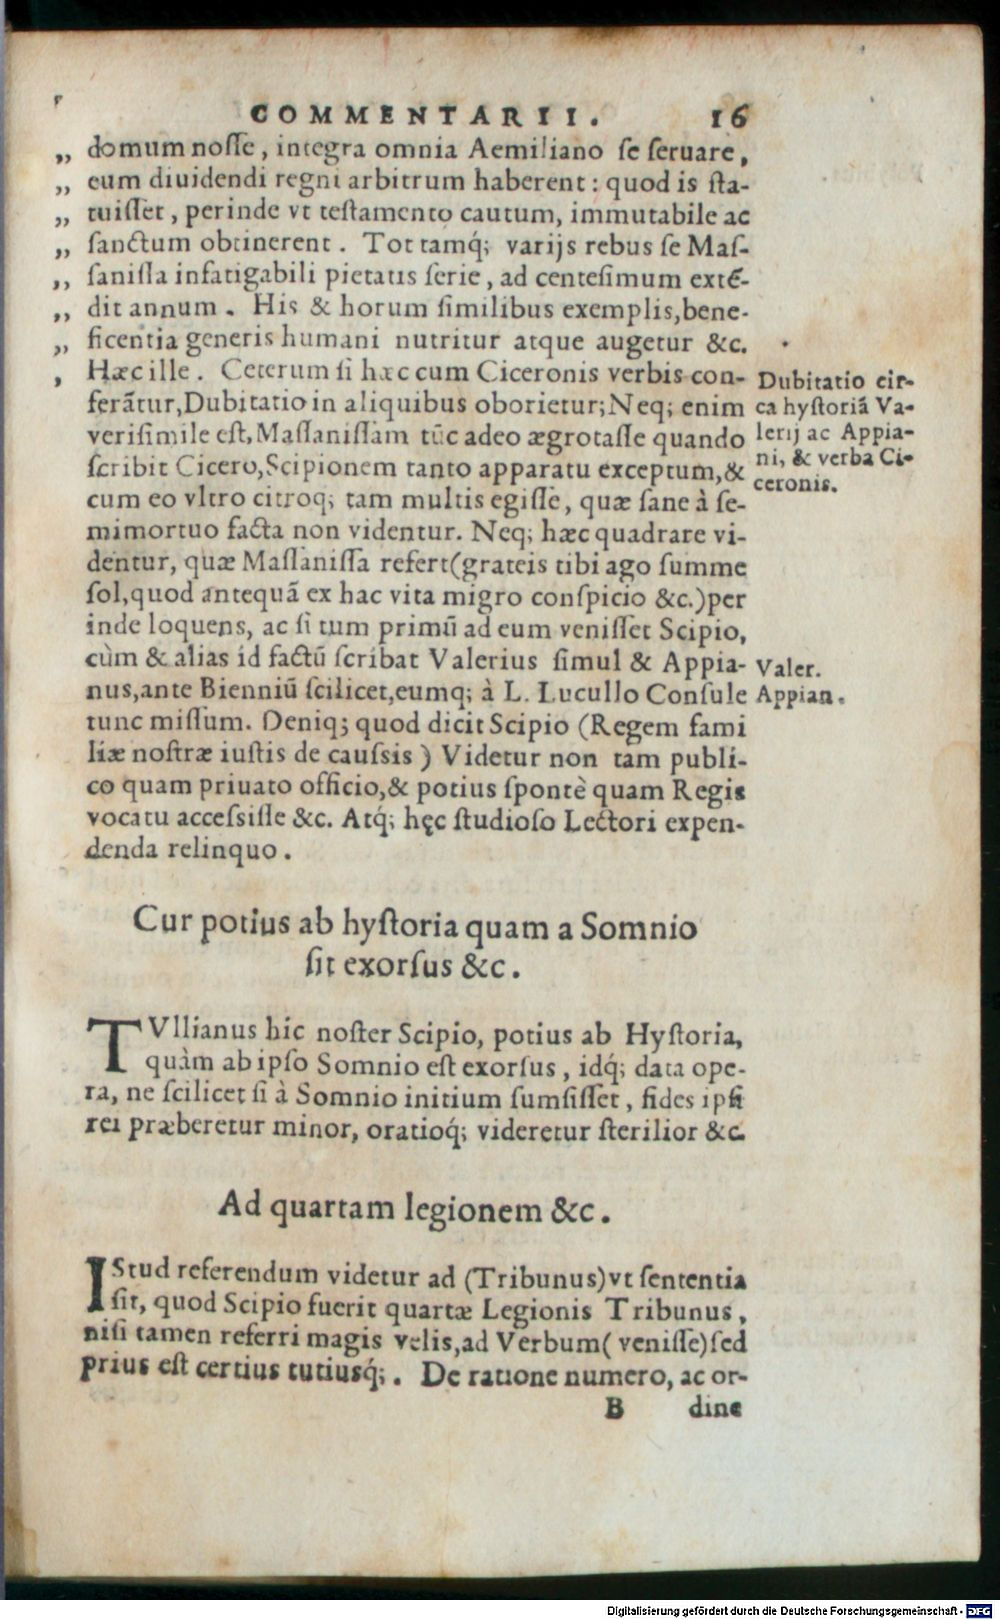 COMMENTARII. 16
„ domum nosſe, integra omnia Aemiliano ſe ſeruare,
„ eum diuidendi regni arbitrum haberent: quod is ſta-
„ tuiſſet, perinde vt teſtamento cautum, immutabile ac
„ ſanctum obtinerent. Tot tamq́; varijs rebus ſe Maſ-
„ ſaniſſa infatigabili pietatis ſerie, ad centeſimum extẽ-
„ dit annum. His & horum ſimilibus exemplis, bene-
„ ficentia generis humani nutritur atque augetur &c.
, Hæc ille. Ceterum ſi hæc cum Ciceronis verbis con-
ferãtur, Dubitatio in aliquibus oborietur; Neq; enim
veriſimile eſt, Maſſaniſſam tũc adeo ægrotaſſe quando
ſcribit Cicero, Scipionem tanto apparatu exceptum, &
cum eo vltro citroq; tam multis egiſſe, quæ ſane à ſe-
mimortuo facta non videntur. Neq; hæc quadrare vi-
dentur, quæ Maſſaniſſa refert (grateis tibi ago ſumme
ſol, quod antequã ex hac vita migro conſpicio &c.) per
inde loquens, ac ſi tum primũ ad eum veniſſet Scipio,
cùm & alias id factũ ſcribat Valerius ſimul & Appia-
nus, ante Bienniũ ſcilicet, eumq; à L. Lucullo Conſule
tunc miſſum. Deniq; quod dicit Scipio (Regem fami
liæ noſtræ iuſtis de cauſsis) Videtur non tam publi-
co quam priuato officio, & potius ſpontè quam Regis
vocatu acceſsiſſe &c. Atq́; hęc ſtudioſo Lectori expen-
denda relinquo.
Dubitatio cir-
ca hyſtoriã Va-
lerij ac Appia-
ni, & verba Ci-
ceronis.
Valer.
Appian.
Cur potius ab hyſtoria quam a Somnio
ſit exorſus &c.
TVllianus hic noſter Scipio, potius ab Hyſtoria,
quàm ab ipſo Somnio eſt exorſus, idq́; data ope-
ra, ne ſcilicet ſi à Somnio initium ſumſiſſet, fides ipſi
rei præberetur minor, oratioq́; videretur ſterilior &c.
Ad quartam legionem &c.
IStud referendum videtur ad (Tribunus) vt ſententia
ſit, quod Scipio fuerit quartæ Legionis Tribunus,
niſi tamen referri magis velis, ad Verbum (veniſſe) ſed
prius eſt certius tutiusq́;. De ratione numero, ac or-
B dine
Digitalisierung gefördert durch die Deutsche Forschungsgemeinschaft - DFG